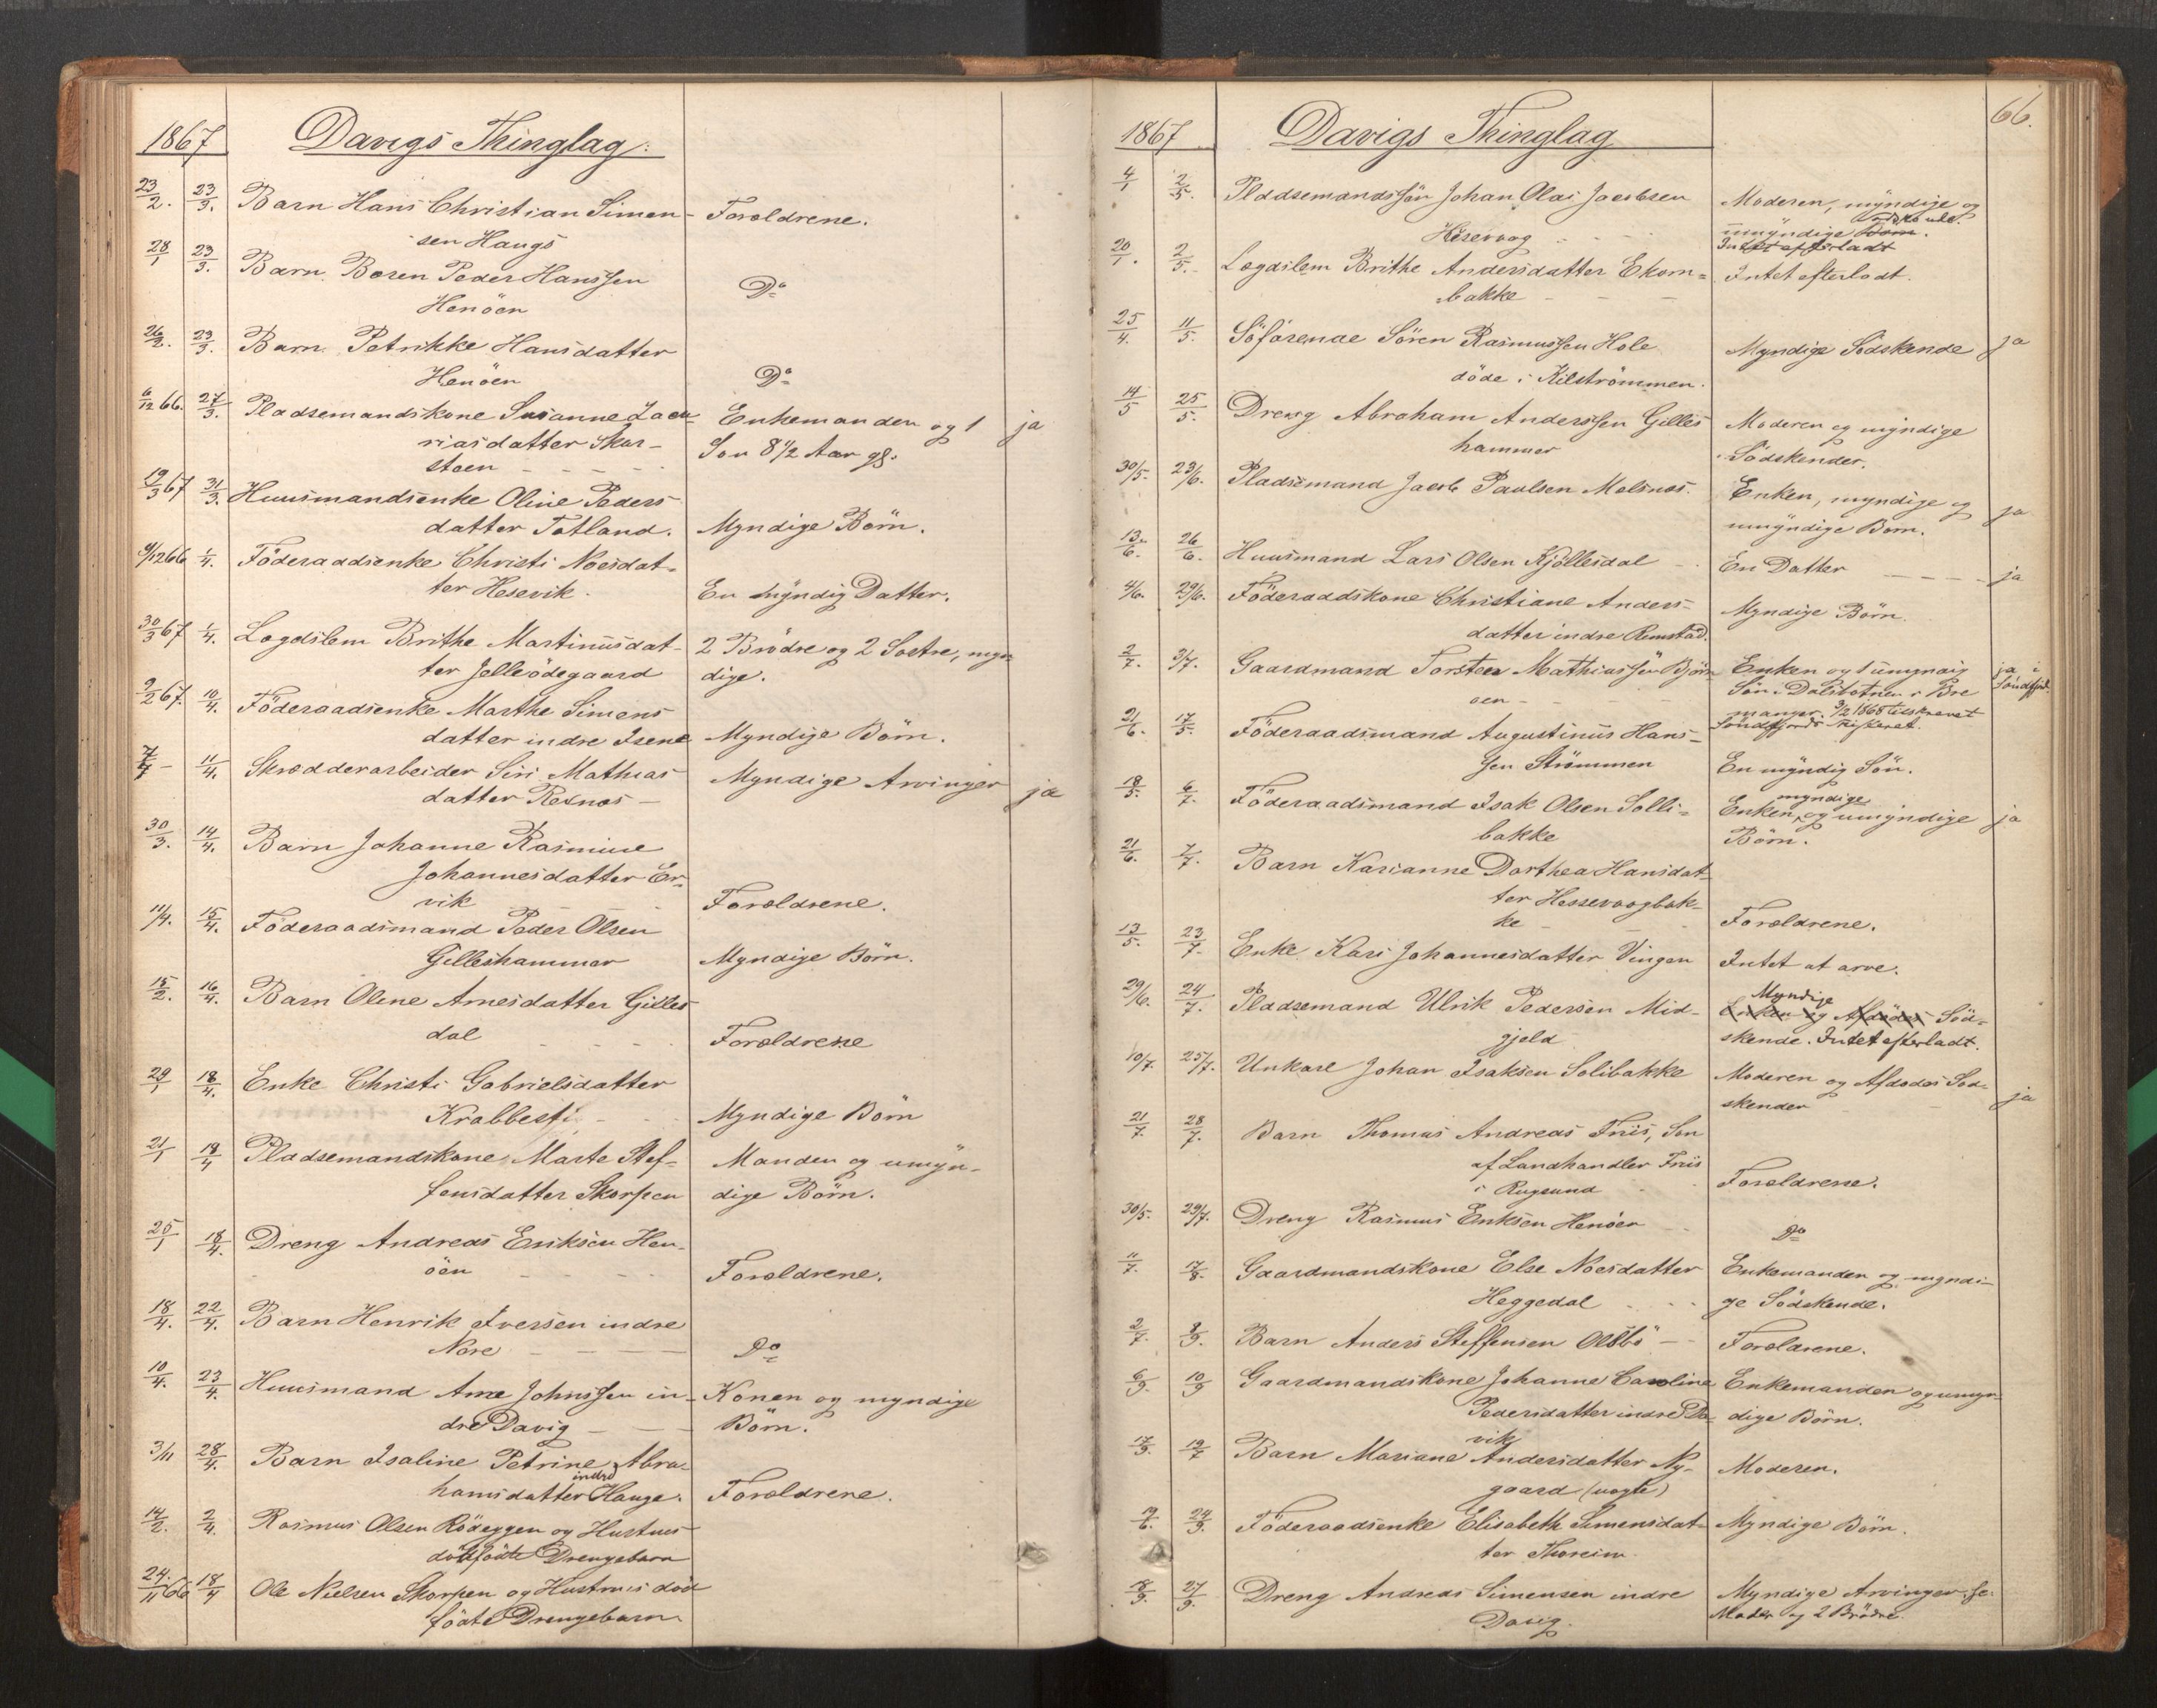 1867 Davigs Thinglag.
23/2. 23/3. Barn Hans Christian Simen- Forældrene.
sen Haugs
28/1 23/3. Barn Peder Hanssen
Henöen Do
26/2. 23/3. Barn Petrikke Hansdatter
Henöen Do
6/12 66. 27/3. Pladsemandskone Susanne Zacu- Enkemanden og 1 ja
riasdatter Skar- Søn 8 1/2 Aar gl.
støen
19/3 67 31/3. Huusmandsenke Oline Peders
datter Totland. Myndige Börn.
9/12 66 1/4. Föderaadsenke Christi Noesdat-
ter Hesevik. En myndig Datter.
30/3 67 1/4. Lægdslem Brithe Martinusdat- 2 Brödre og 2 Søstre, myn-
ter Jelleödegaard dige.
9/2 67. 10/4. Föderaadsenke Marthe Simens
datter indre Isene Myndige Börn.
7/4 - 11/4. Skrædderarbeider Siri Mathias Myndige Arvinger ja
datter Rexnæs
30/3. 14/4. Barn Johanne Rasmine
Johannesdatter Er-
vik Forældrene.
11/4. 15/4. Föderaadsmand Peder Olsen
Gilleshammer Myndige Börn.
15/2. 16/4. Barn Oline Arnesdatter Gilles
dal Forældrene
29/1 18/4. Enke Christi Gabrielsdatter
Krabbesti Myndige Börn
21/1 18/4 Pladsemandskone Marte Stef- Manden og umyn-
fensdatter Skorpen dige Börn.
25/1 18/4. Dreng Andreas Eriksen Hen-
öen Forældrene.
18/4. 22/4. Barn Henrik Iversen indre
Nore Do
10/4. 23/4. Huusmand Arne Johnssen in- Konen og myndige
dre Davig Börn.
3/11 28/4. Barn Isaline Petrine Abra-
hamsdatter indre Hauge. Forældrene.
14/2. 2/4. Rasmus Olsen Rödeggen og Hustrues
dödfödte Drengebarn
24/11 66 18/4 Ole Nielsen Skorpen og Hustrues död
födte Drengebarn
66.
1867 Davigs Thinglag
4/1 2/5. Pladsemandssön Johan Olai Jacobsen Moderen, myndige og
Hesevaag umyndige Börn.
Intet efterladt
20/1. 2/5. Lægdslem Brithe Andersdatter Ekorn= Intet efterladt.
bakke
25/4. 11/5. Söfarende Sören Rasmussen Hole Myndige Södskende ja
döde i Kilströmmen.
14/5 25/5. Dreng Abraham Anderssen Gilles Moderen og myndige
hammer Södskender.
30/5. 23/6. Pladsemand Jacob Paulsen Melsnæs. Enken, myndige og ja
umyndige Börn.
13/6. 26/6. Huusmand Lars Olsen Kjöllesdal En Datter ja
4/6. 29/6. Föderaadskone Christiane Anders- Myndige Börn.
datter indre Rimstad.
2/7. 3/7. Gaardmand Torsten Mathiassen Björn Enken og 1 umyndig ja i
öen Sön i Dalsbotnen i Bre Söndfjord.
manger. 3/2 1868 tilskrevet
Söndfjords Skifteret.
21/6. 17/5. Föderaadsmand Augustinus Hans-
sen Strömmen En myndig Sön.
18/5. 6/7. Föderaadsmand Isak Olsen Solli- Enken, myndige og umyndige ja
bakke Börn.
21/6. 7/7. Barn Karianne Dorthea Hansdat-
ter Hessevaagbak-
ke Forældrene.
13/5. 23/7. Enke Kari Johannesdatter Vingen Intet at arve.
29/6. 24/7. Pladsemand Ulrik Pedersen Mid- Myndige Enken og Afdödes Söd-
gjeld skende. Intet efterladt.
10/7. 25/7. Unkarl Johan Isaksen Solibakke Moderen og Afdödes Söd-
skender ja
21/7. 28/7. Barn Thomas Andreas Friis, Sön
af Landhandler Friis
i Rugsund Forældrene.
30/5. 29/7. Dreng Rasmus Eriksen Henöen Do
11/7. 17/8. Gaardmandskone Else Noesdatter Enkemanden og myndi-
Heggedal ge Södskende.
2/7. 8/9. Barn Anders Steffensen Oldbö Forældrene.
6/9. 10/9 Gaardmandskone Johanne Caroline Enkemanden og umyn-
Pedersdatter indre Da- dige Börn.
vik
17/9. 19/7 Barn Mariane Andersdatter Ny- Moderen.
gaard (uægte)
19/6. 24/9. Föderaadsenke Elisabeth Simensdat- Myndige Börn.
ter Thoreim
18/9. 27/9. Dreng Andreas Simensen indre Myndige Arvinger, se.
Davig. Moder og 2 Brödre.